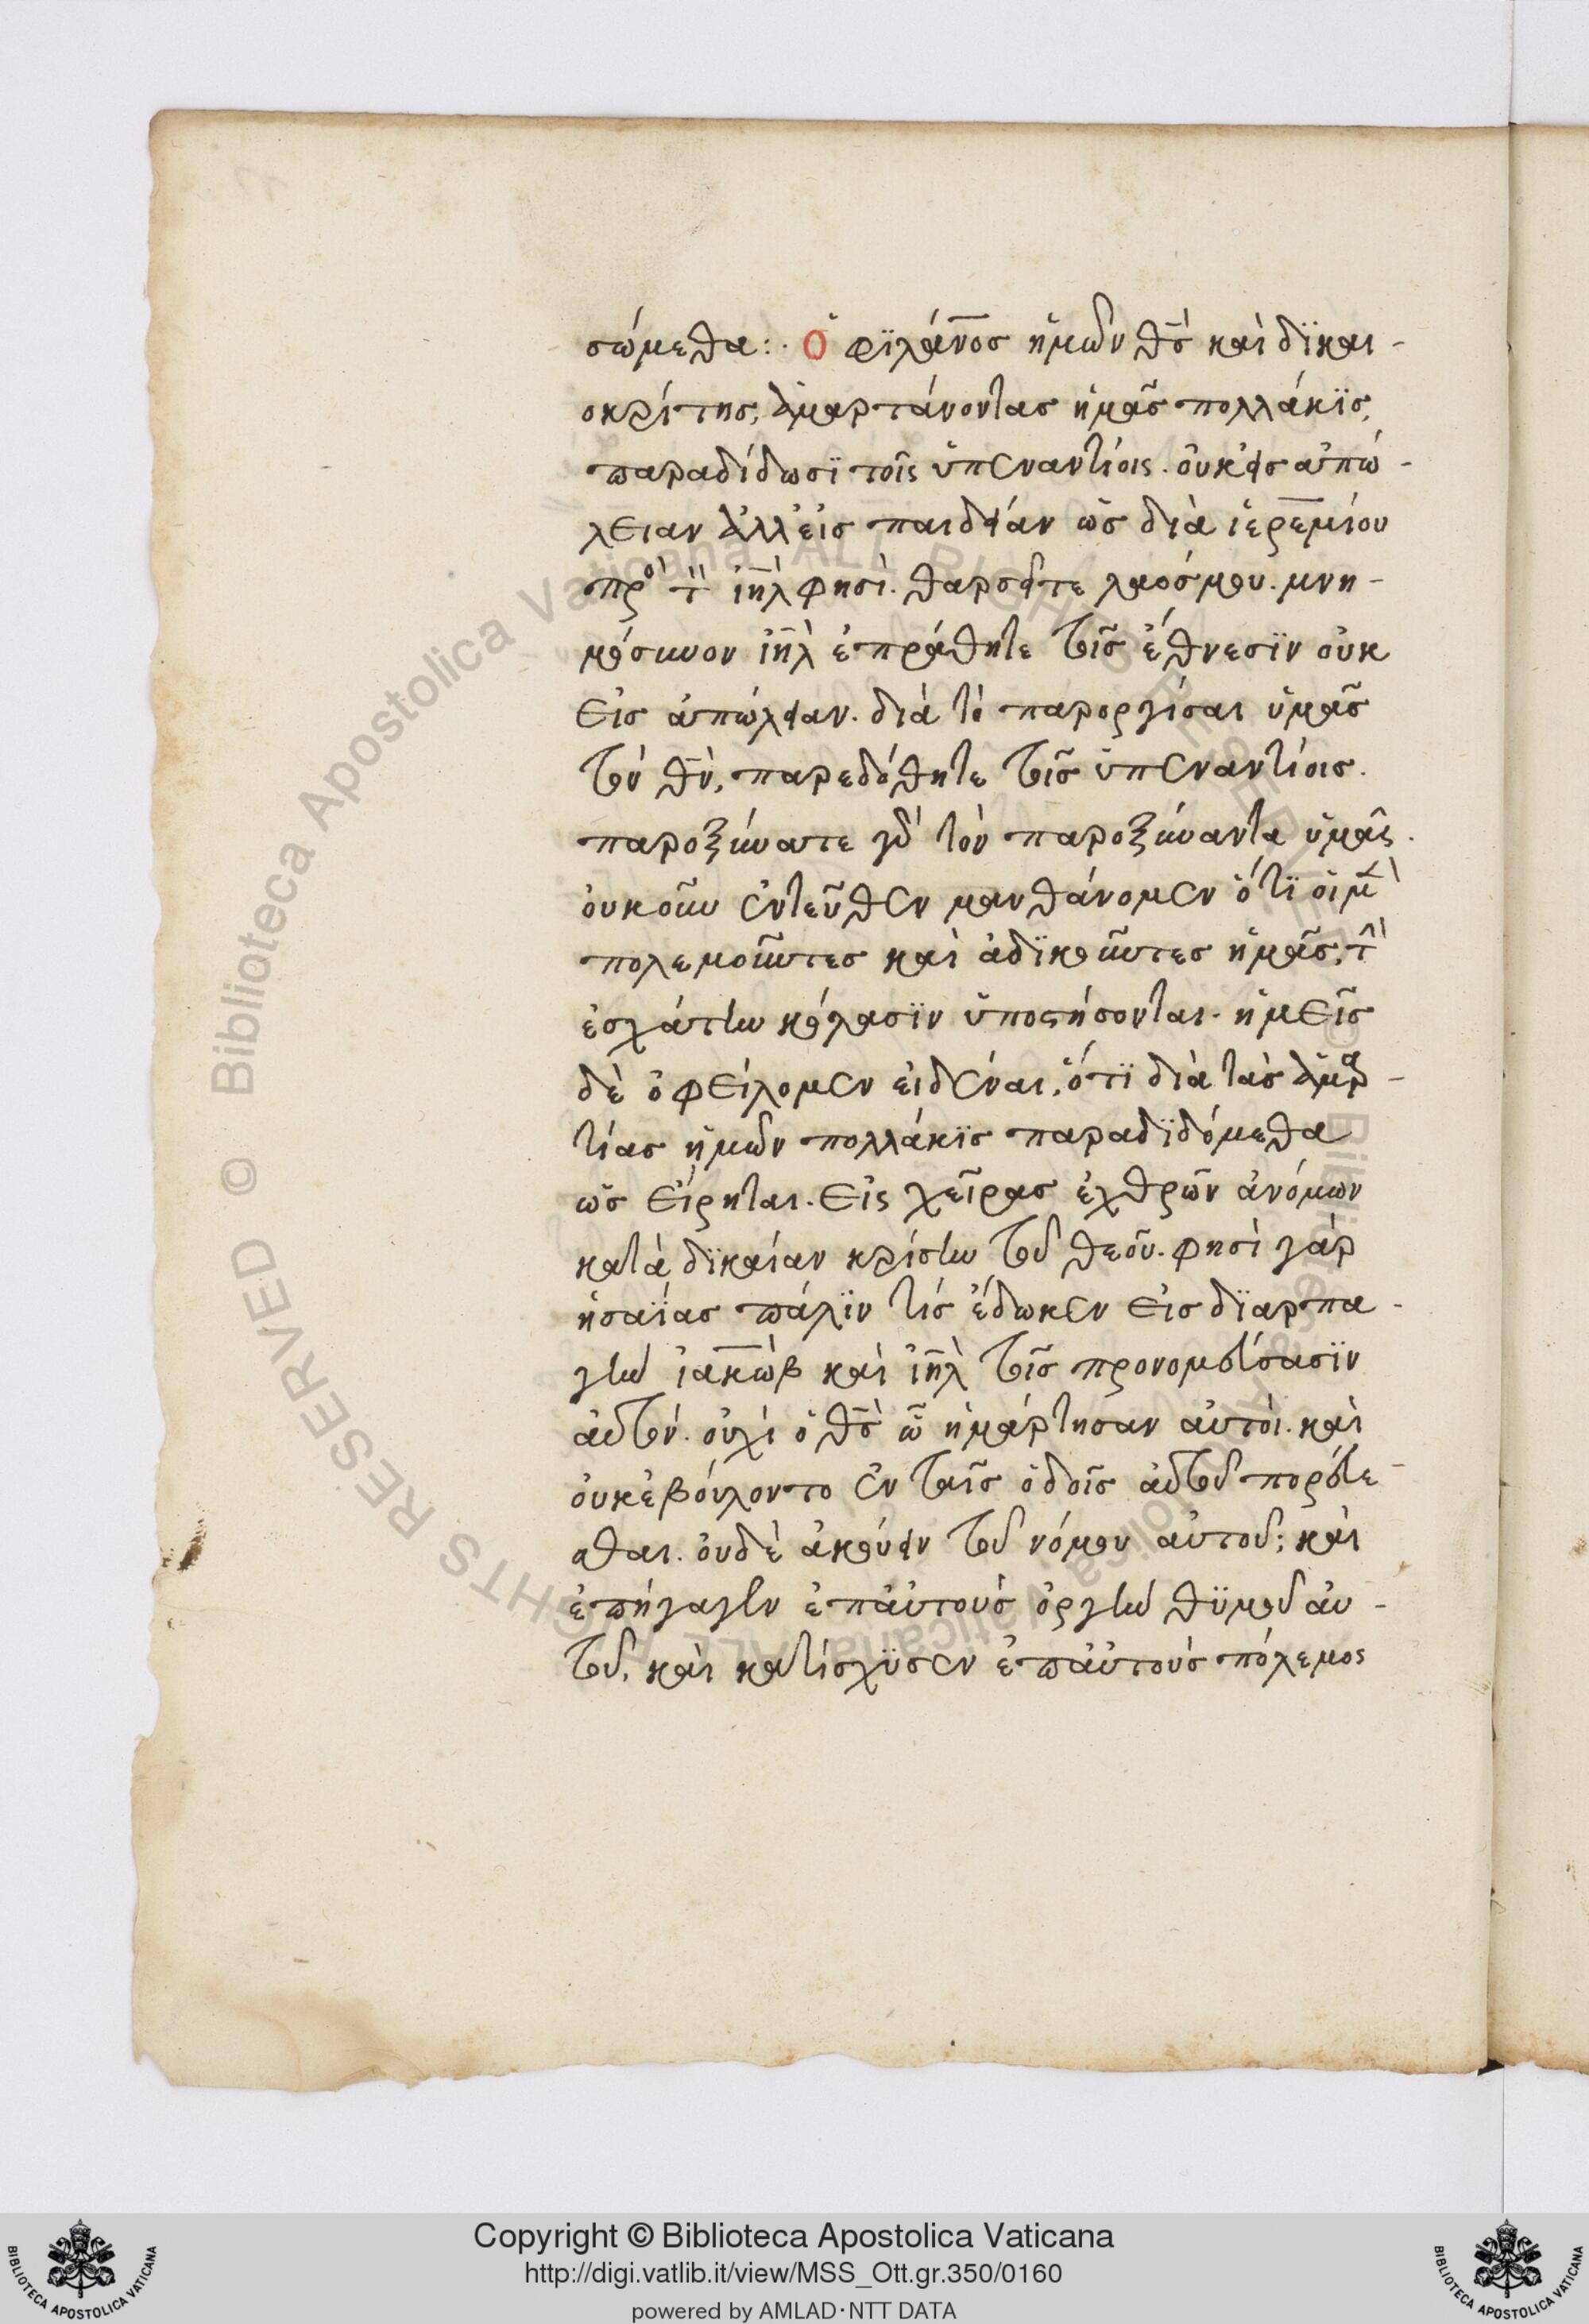 σώμεθα:· Ὁ φϊλάνος ἡμῶν θς καὶ δϊκαι-
οκρίτης, ἁμαρτάνοντας ἡμᾶς πολλάκϊς,
παραδίδωσϊ τοῖς ὑπεναντίοις. οὐκ εἰς ἀπώ-
λειαν ἀλλ' εἰς παιδείαν ὡς διὰ ἱερεμίου
πρὸς τ ιηλ φησὶ. θαρσεῖτε λαόσμου. μνη-
μόσυνον ιηλ ἐπράθητε τοῖς ἔθνεσϊν οὐκ
εἰς ἀπώλειαν. διὰ τὸ παροργίσαι ὑμᾶς
τὸν θν, παρεδόθητε τοῖς ὑπεναντίοις.
παροξύνατε γὰρ τὸν παροξύναντα ὑμᾶς.
οὐκοῦν ἐντεῦθεν μανθάνομεν ὅτϊ οἱ μὲν
πολεμοῦντες καὶ ἀδϊκοῦντες ἡμᾶς, τὴν
ἐσχάτην κόλασϊν ὑποστήσονται. ἡμεῖς
δὲ ὀφείλομεν εἰδέναι, ὅτϊ διὰ τὰς ἁμαρ-
τίας ἡμῶν πολλάκϊς παραδϊδόμεθα
ὡς εἴρηται. εἰς χεῖρας ἐχθρῶν ἀνόμων
κατὰ δϊκαίαν κρίσιν τοῦ θεοῦ. φησὶ γὰρ
ἡσαΐας πάλϊν τίς ἔδωκεν εἰς δϊαρπα-
γὴν ἰακὼβ καὶ ιηλ τοῖς προνομεύσασϊν
αὐτόν. οὐχὶ ὁ θς ὧ ἡμάρτησαν αὐτοὶ. καὶ
οὐκ ἐβούλοντο ἐν ταῖς ὁδοῖς αὐτοῦ πορεύε-
σθαι. οὐδὲ ἀκούειν τοῦ νόμου αὐτοῦ; καὶ
ἐπήγαγεν ἐπ' αὐτοὺς ὀργὴν θϋμοῦ αὐ-
τοῦ, καὶ κατίσχϋσεν ἐπ' αὐτοὺς πόλεμος
Copyright © Biblioteca Apostolica Vaticana
http://digi.vatlib.it/view/MSS_Ott.gr.350/0160
powered by AMLAD·NTT DATA
BIBLIOTECA APOSTOLICA VATICANA
BIBLIOTECA APOSTOLICA VATICANA
© Biblioteca Apostolica Vaticana ALL RIGHTS RESERVED
© Biblioteca Apostolica Vaticana ALL RIGHTS RESERVED